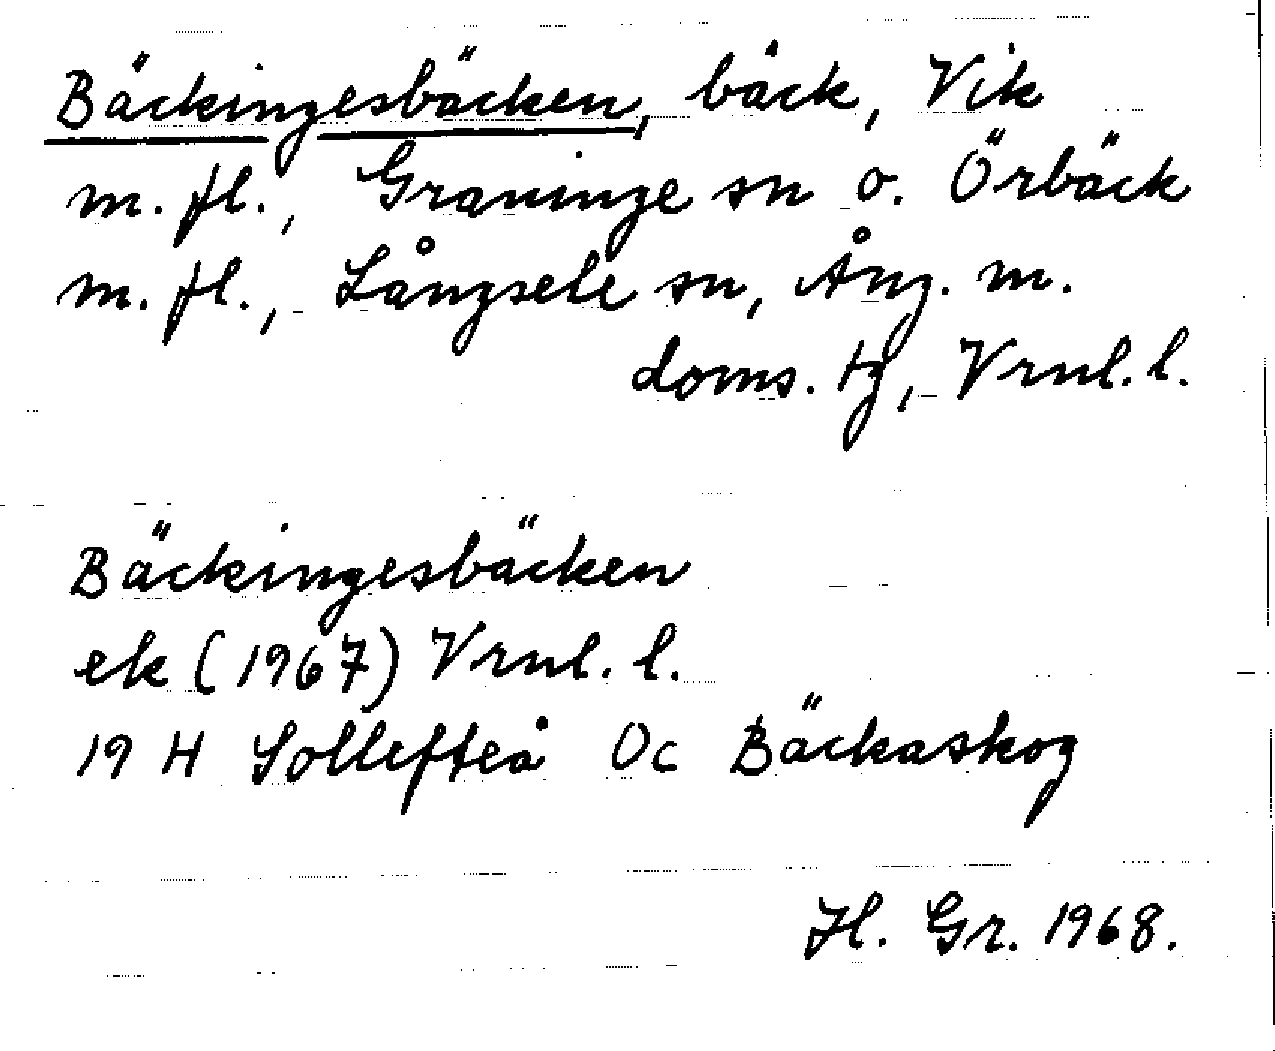 Bäckingesbäcken, bäck, Vik
m. fl., Graninge sn o. Örbäck
m. fl., Långsele sn, Ång. m.
doms. tg, Vrnl. l.
Bäckingesbäcken
ek (1967) Vrnl. l.
19 H Sollefteå Oc Bäckaskog
Hl. Gr. 1968.